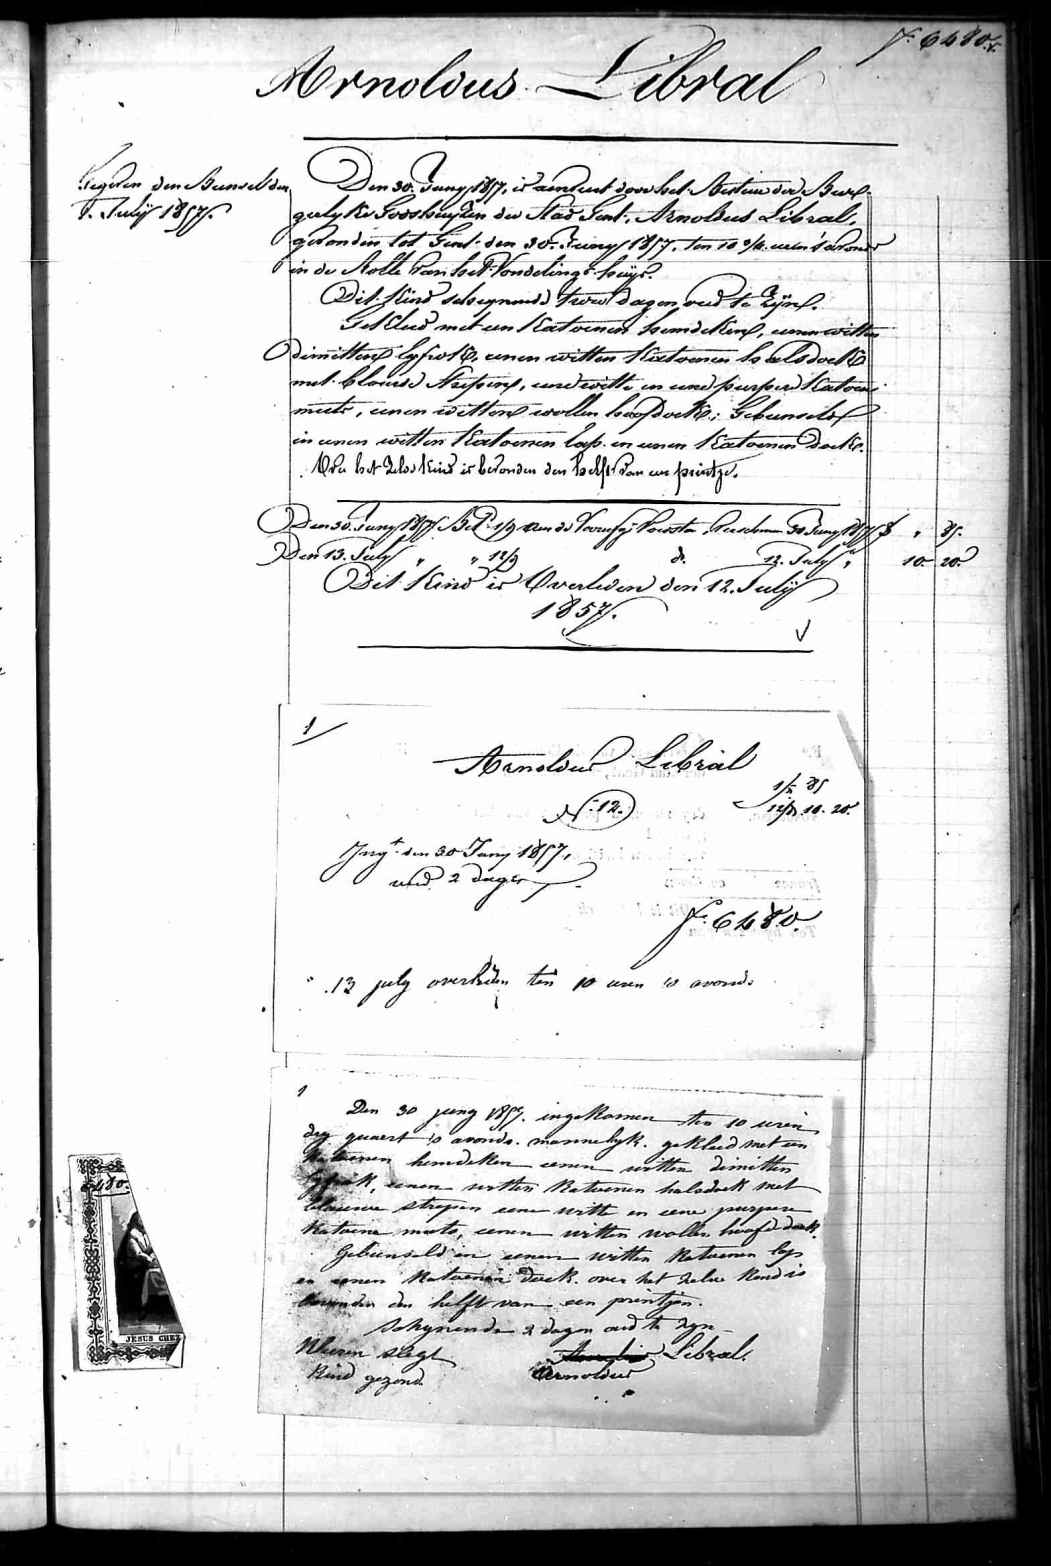 f. 6480.
Arnoldus Libral
den Bunsel den
8. July 1857.
Den 30. Juny 1857, is aenveert door het Bestier der Burgerlyke Godshuyzen der Stad Gent, Arnoldus Libral,
gevonden tot Gent den 30. Juny 1857. ten 10 3/4 uren 's avonds
in de Rolle van het Vondelings-huys.
Dit Kind schynende twee dagen oud te zyn.
Gekleed met een Katoenen hemdeken, eenen witten
dimitten lyfrok, eenen witten Katoenen halsdoek
met blauwe strepen, eene witte en eene purpere Katoene
muts, eenen witten wollen hoofdoek; Gebunseld
in eenen witten Katoenen lap en eenen Katoenen doek.
Over het zelve Kind is bevonden den helft van een printje.
Den 30. Juny 1857. 30 Juny 1857 " 85.
Den 13. July " " 12/9 do. 12. July " 10. 20.
Dit Kind is Overleden den 12. July
1857.
1
Arnoldus Libral
1/ 85
12/ 10. 20.
N. 12.
Ingt. den 30 Juny 1857,
oud 2 dagen
f. 6480.
13 july overleden ten 10 uren 's avonds
1
Den 30 juny 1857. ingekomen ten 10 uren
dry quaert 's avonds. mannelyk. gekleed met een
Katoenen hemdeken eenen witten dimitten
lyfrok, eenen witten Katoenen halsdoek met
blauwe strepen eene witte en eene purpere
Katoene muts, eenen witten wollen hoofddoek.
Gebunseld in eenen witten Katoenen lap
en eenen Katoenen doek. over het zelve Kind is
bevonden den helft van een printjen.
schynende 2 dagen oud te zyn
Kleeren slegt Libral.
Kind gezond. Arnoldus
6480.
JESUS CHEZ